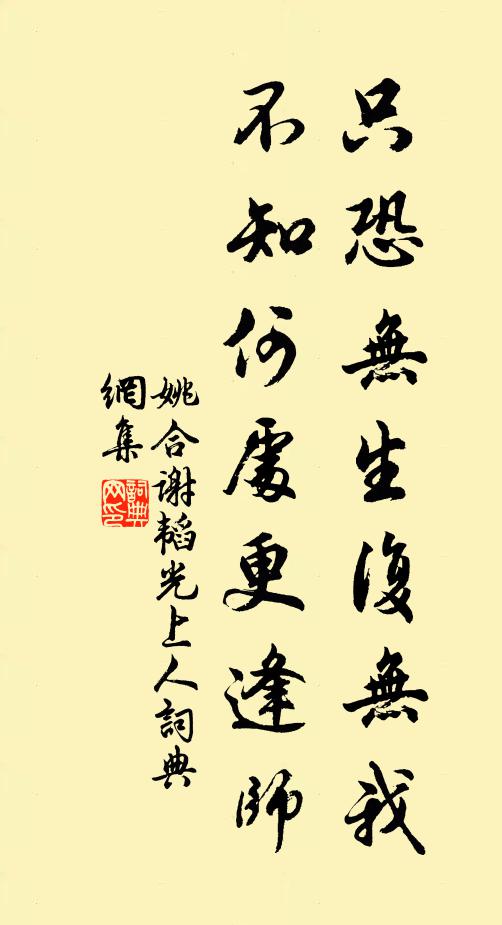 只恐無生復無我
不知何處更逢師
姚合谢韬光上人詞典
網集
詞典
网印